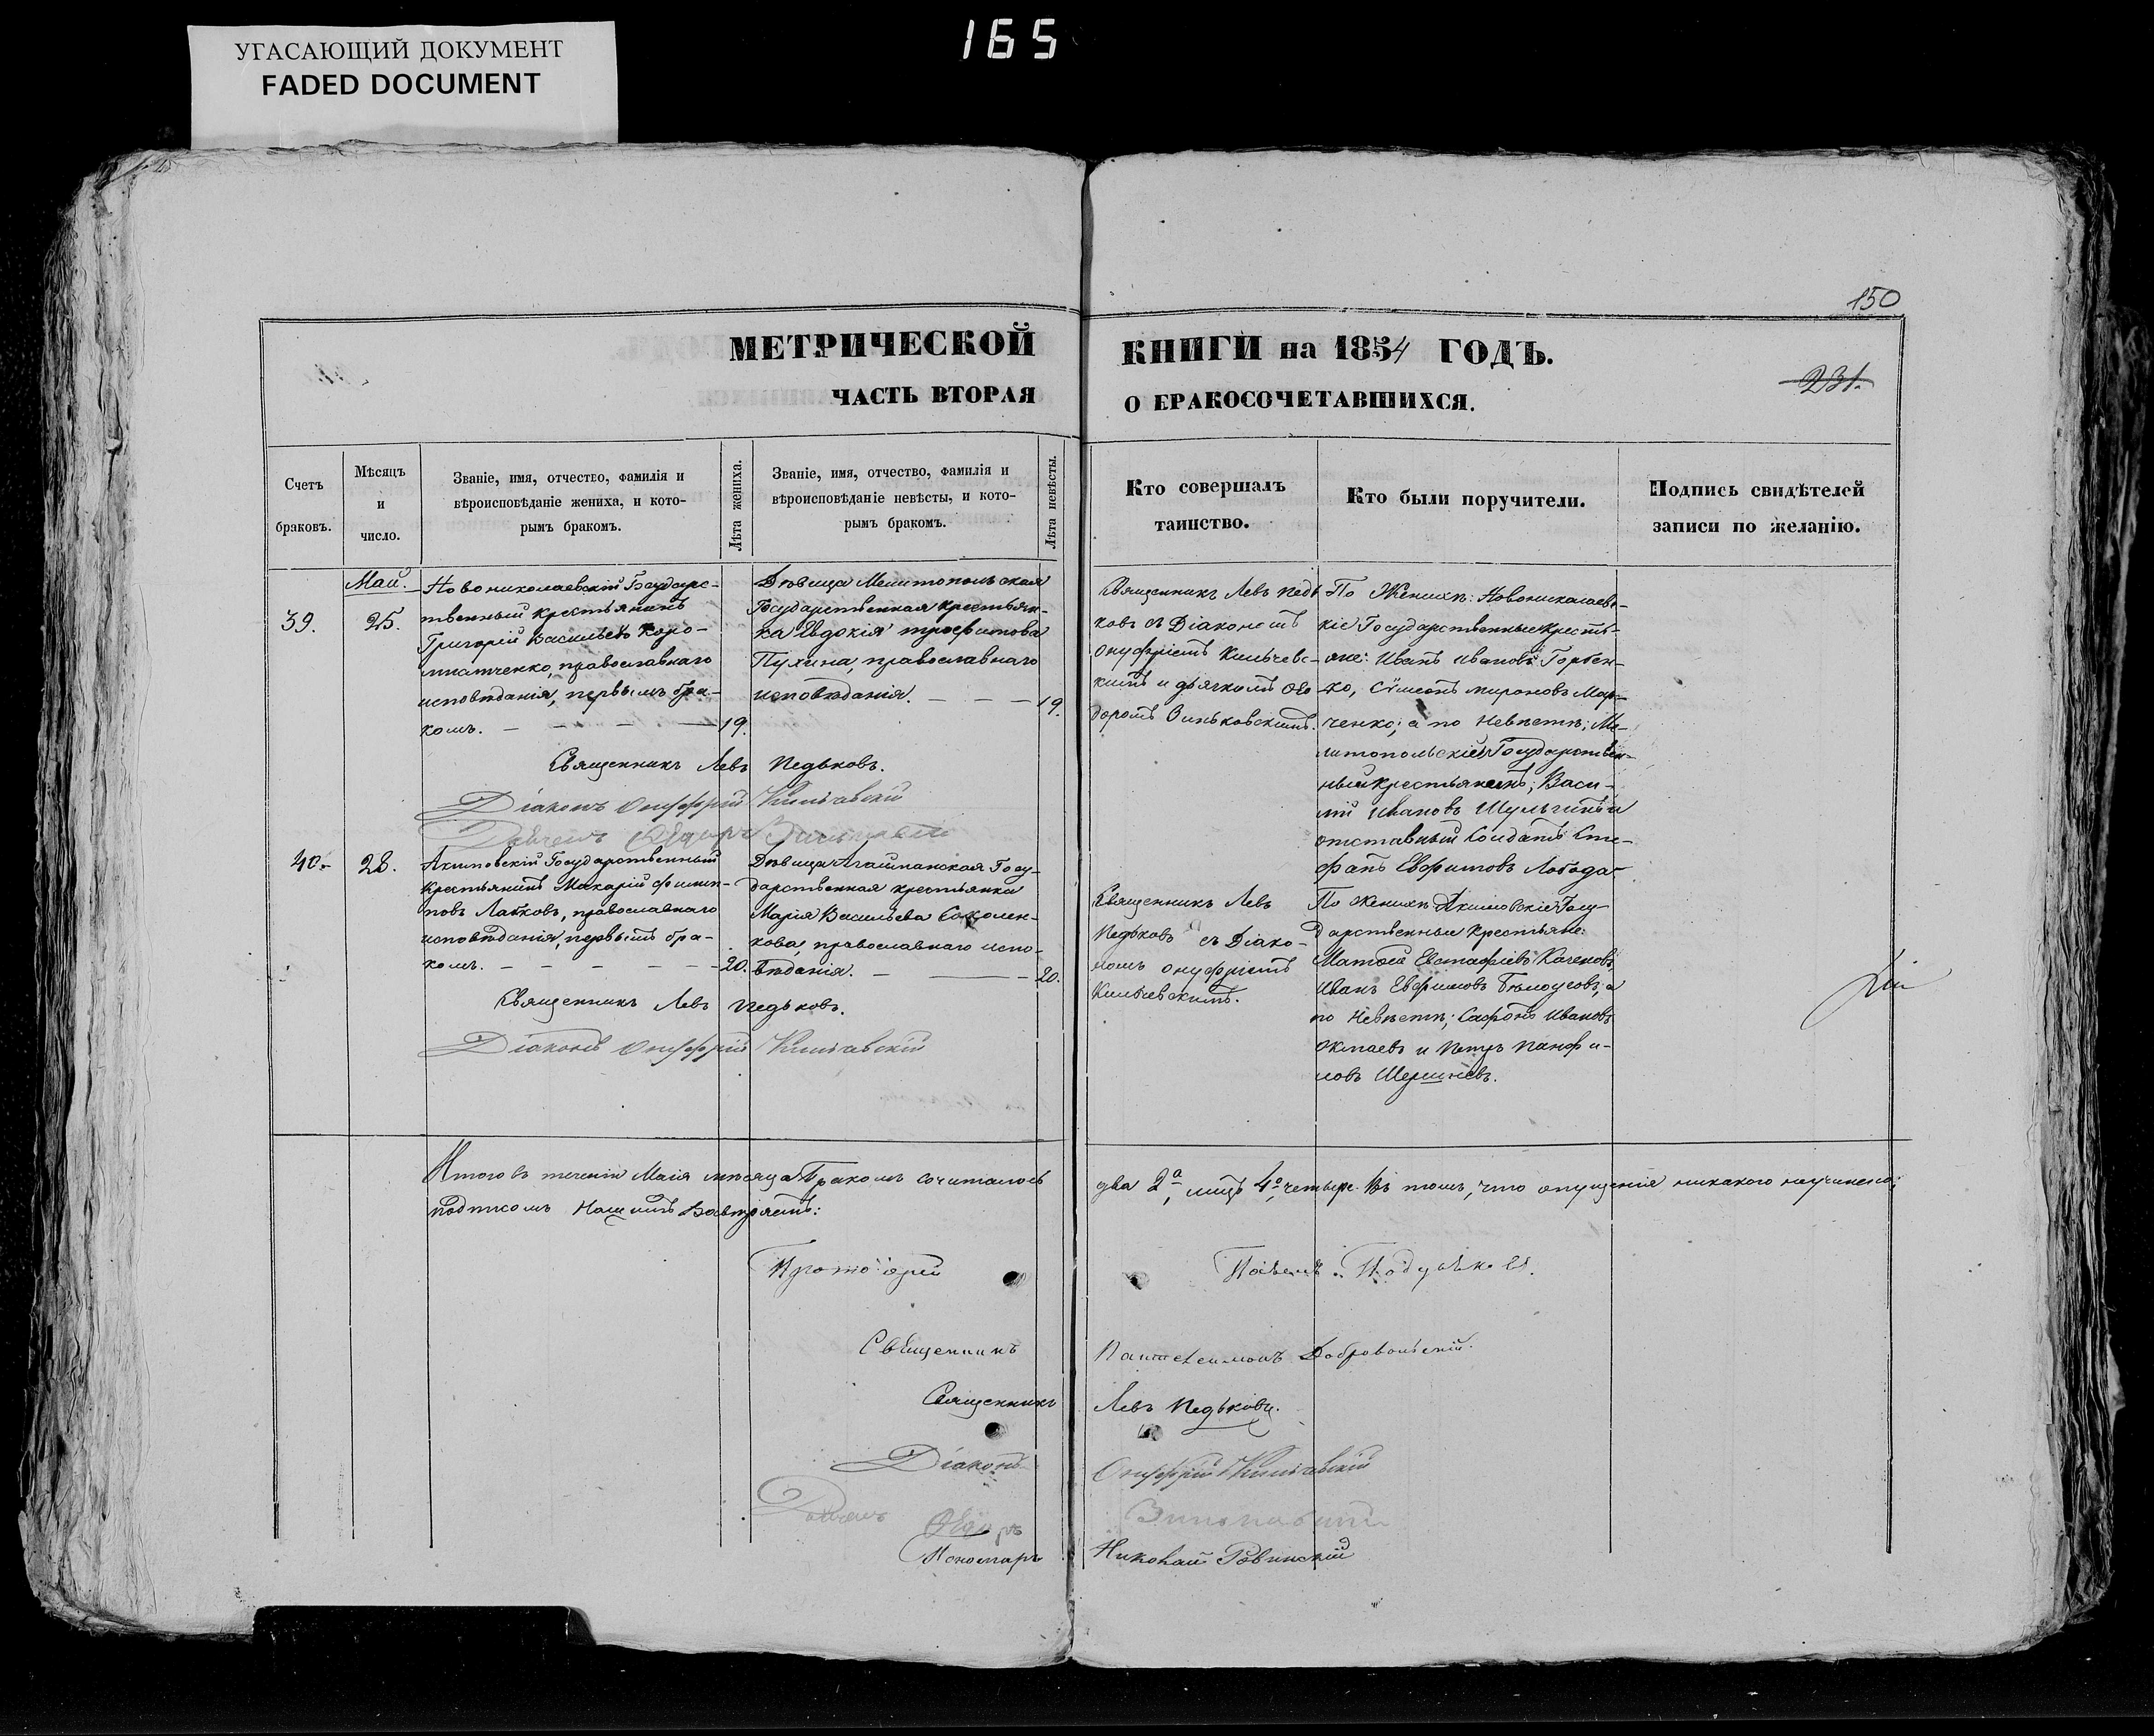 165
УГАСАЮЩИЙ ДОКУМЕНТ
FADED DOCUMENT
150
МЕТРИЧЕСКОЙ КНИГИ на 1854 ГОДЪ.
231.
ЧАСТЬ ВТОРАЯ О БРАКОСОЧЕТАВШИХСЯ.
Счетъ браковъ.
Мѣсяцъ и число.
Званіе, имя, отчество, фамилія и
вѣроисповѣданіе жениха, и кото-
рымъ бракомъ.
Лѣта жениха.
Званіе, имя, отчество, фамилія и
вѣроисповѣданіе невѣсты, и кото-
рымъ бракомъ.
Лѣта невѣсты.
Кто совершалъ
таинство.
Кто были поручители.
Подпись свидѣтелей
записи по желанію.
Май.
39.
25.
Новониколаевскій Государс-
твенный крестьянинъ
Григорій Васильевъ Коро-
православнаго
исповѣданія, первымъ бра-
комъ. 19.
Дѣвица Мелитопольская
Государственная крестьян-
ка Евдокія Трофимова
Пухина, православнаго
исповѣданія. 19.
Священникъ Левъ Педь
ковъ съ Діакономъ
Онуфріемъ Кильчевс-
кимъ и дьячкомъ Ѳео
доромъ Зиньковскимъ.
По Женихѣ: Новониколаевс-
кіе Государственные кресть-
яне: Иванъ Ивановъ Горбен-
ко, Сѵмеонъ Мироновъ Мар-
ченко; а по Невѣстѣ; Ме-
литопольскій Государствен-
ный крестьянинъ; Васи-
лій Ивановъ Шульгинъ и
отставный Солдатъ Сте-
фанъ Евфимовъ Лобода
Священникъ Левъ Педьковъ.
Діаконъ Онуфрій Кильчевскій
40.
28.
Акимовскій Государственный
крестьянинъ Макарій Филип-
повъ Лабковъ, православнаго
исповѣданія, первымъ бра-
комъ. 20.
Дѣвица Государственная крестьянка
Марія Васильева Соколен-
кова, православнаго испо-
вѣданія. 20.
Священникъ Левъ
Педьковъ съ Діако-
номъ Онуфріемъ
Кильчевскимъ.
По Женихѣ Акимовскіе Госу-
дарственные крестьяне:
Матѳей Евстафіевъ
Иванъ Евфимовъ Бѣлоусовъ, а
по Невѣстѣ; Сафонъ Ивановъ
и Петръ Панфи-
ловъ
Священникъ Левъ Педьковъ.
Діаконъ Онуфрій Кильчевскій
Итого въ теченіи Маія мѣсяца Бракомъ сочиталось два 2а, лицъ 4о, четыре. Въ томъ, что опущенія никакого неучинено;
подписомъ Нашимъ
Протоіерей Павелъ
Священникъ Пантелеимонъ Добровольскій.
Священникъ Левъ Педьковъ.
Діаконъ Онуфрій Кильчевскій
Дьячекъ Ѳеодоръ Зиньковскій
Пономарь Николай Ровинскій